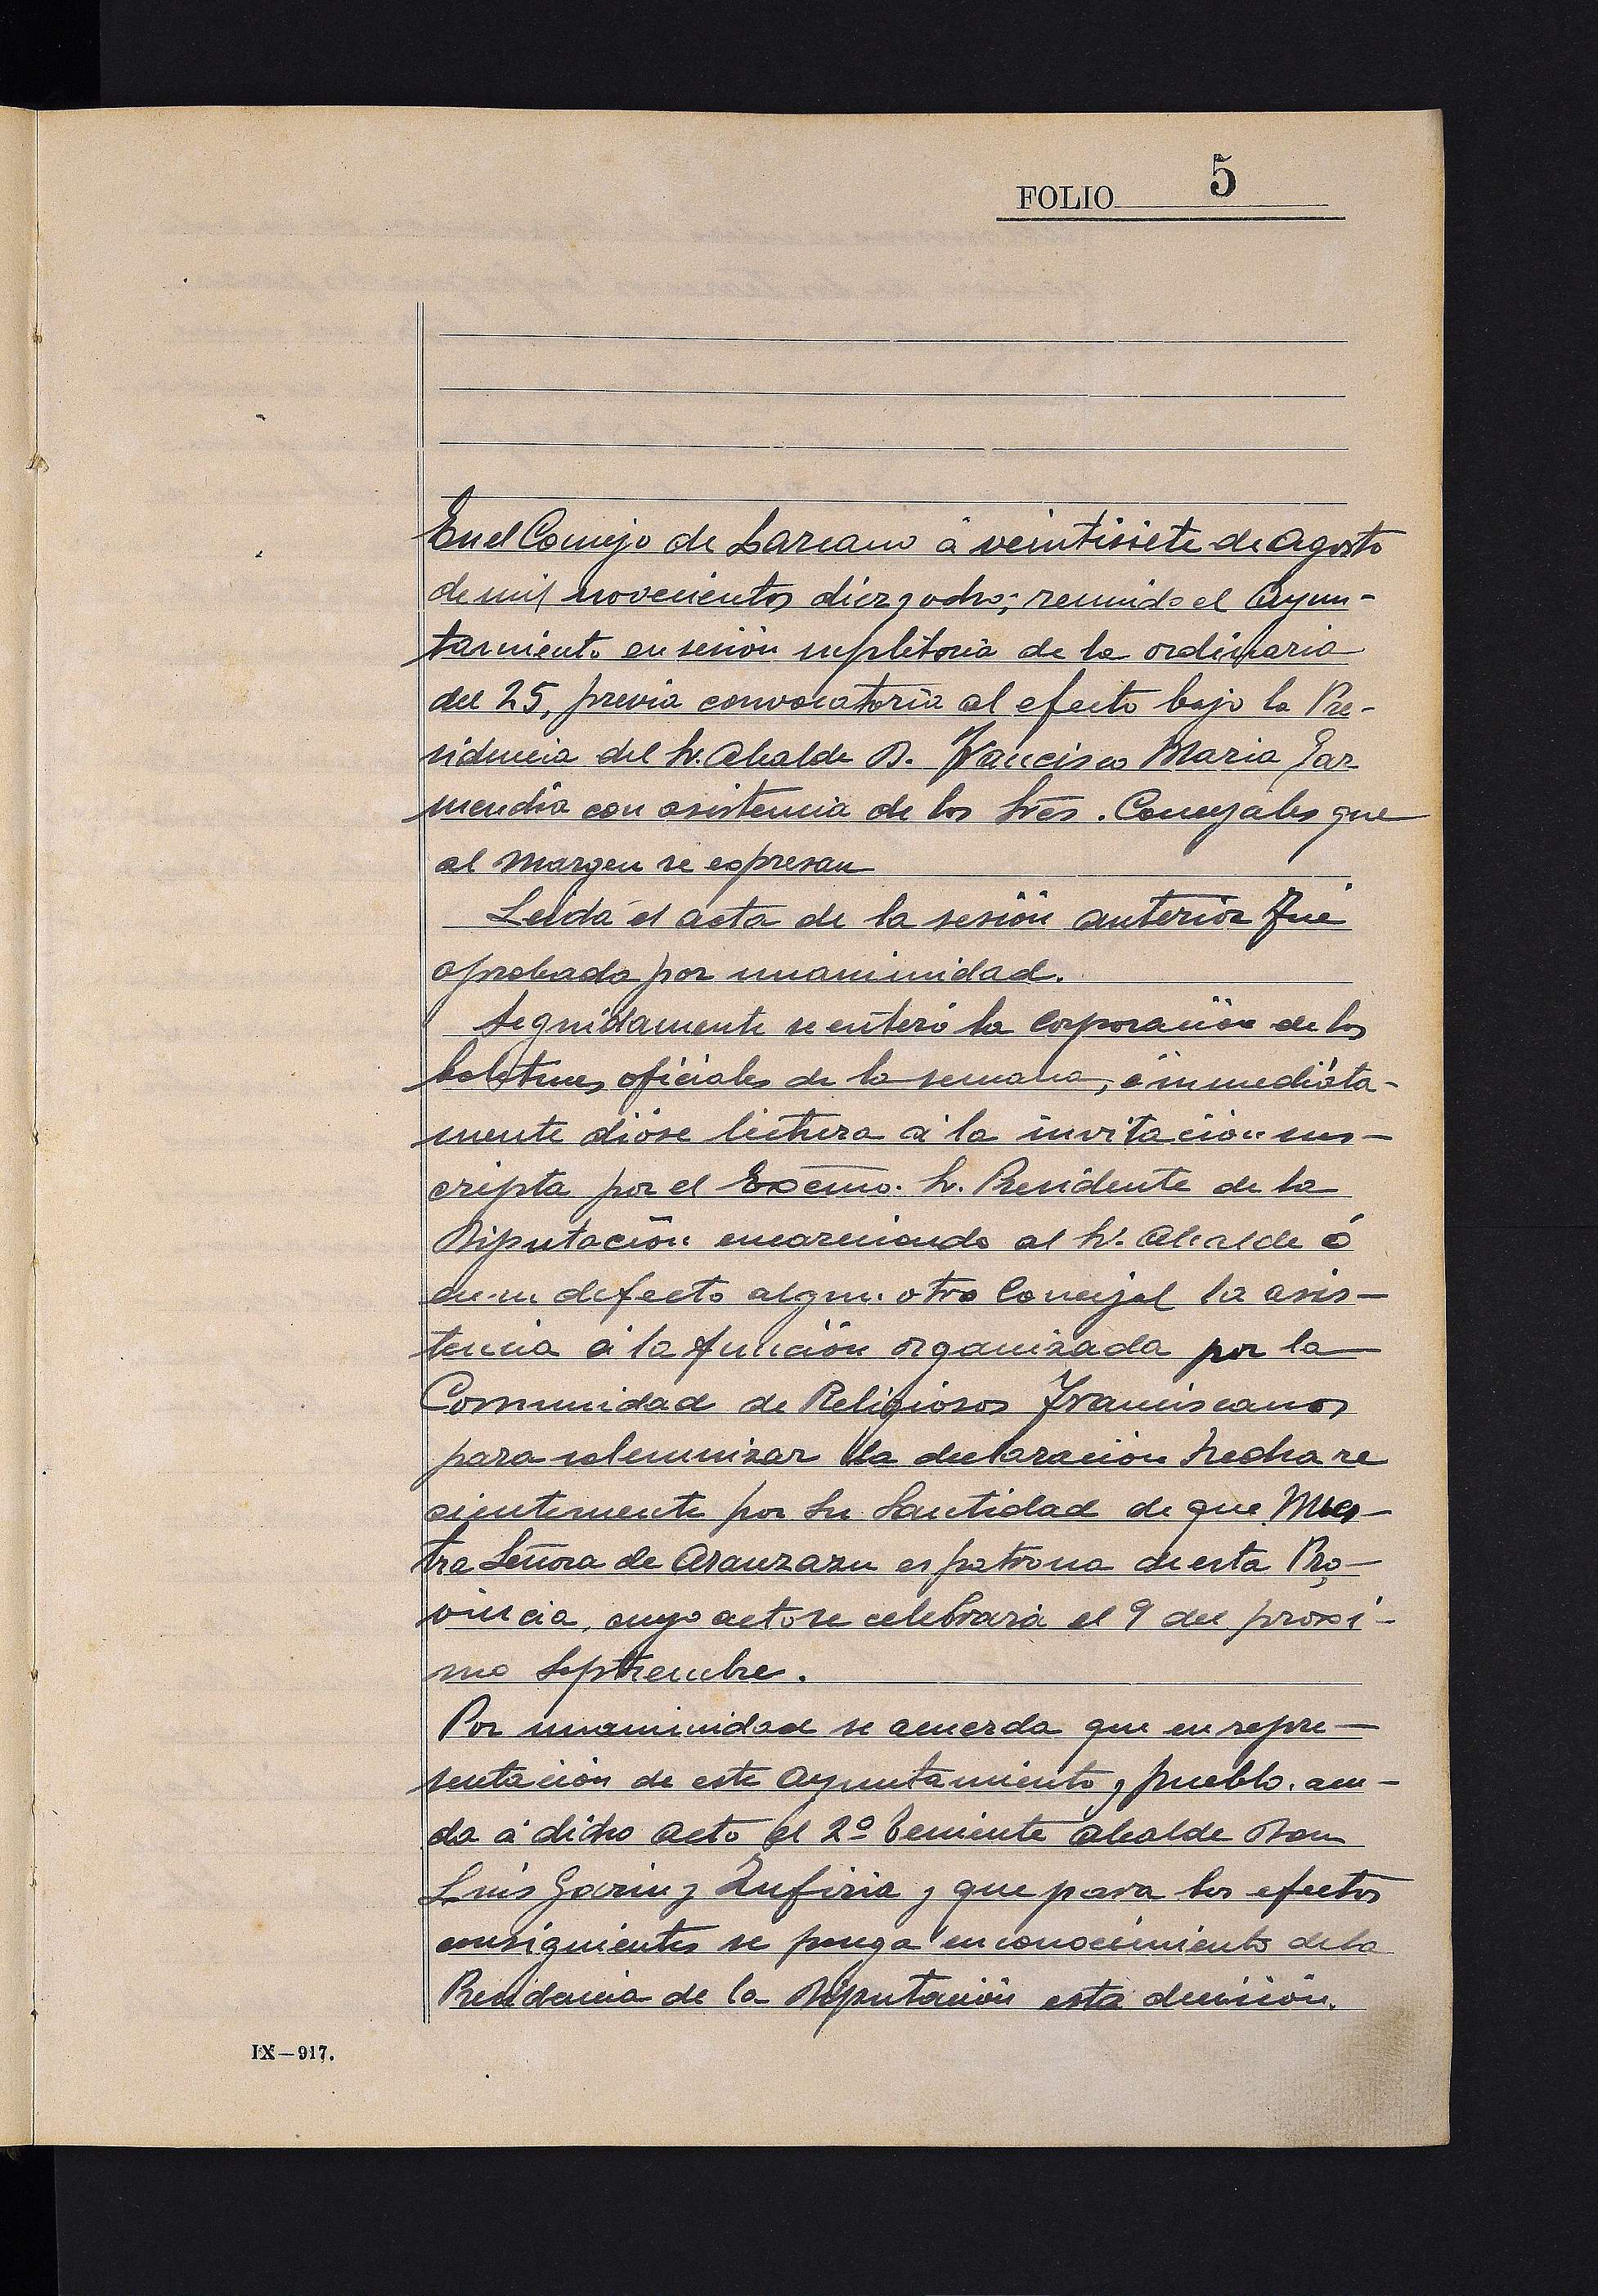 FOLIO 5
En el Concejo de Lazcano á veintisiete de Agosto
de mil novecientos diez y ocho; reunido el Ayun-
tamiento en sesión supletoria de la ordinaria
del 25, previa convocatoria al efecto bajo la Pre-
sidencia del Sr. Alcalde D. Francisco Maria Gar
mendia con asistencia de los Sres. Concejales que
al margen se expresan
Leida el acta de la sesión anterior fué
aprobada por unanimidad.
Seguidamente se enteró la Corporación de los
boletines oficiales de la semana, é inmediata-
mente dióse lectura á la invitación sus-
cripta por el Excmo. Sr. Presidente de la
Diputación encareciendo al Sr. Alcalde ó
en su defecto algun otro Concejal la asis-
tencia á la función organizada por la
Comunidad de Religiosos Franciscanos
para solemnizar la declaración hecha re
cientemente por Su Santidad de que Nues-
tra Señora de Aranzazu es patrona de esta Pro-
vincia, cuyo acto se celebrará el 9 del proxi-
mo Septiembre.
Por unanimidad se acuerda que en repre-
sentación de este Ayuntamiento y pueblo, acu-
da á dicho acto el 2º Teniente Alcalde Don
Luis Garin y Zufiria y que para los efectos
consiguientes se ponga en conocimiento de la
Presidencia de la Diputación esta decisión.
IX—917.